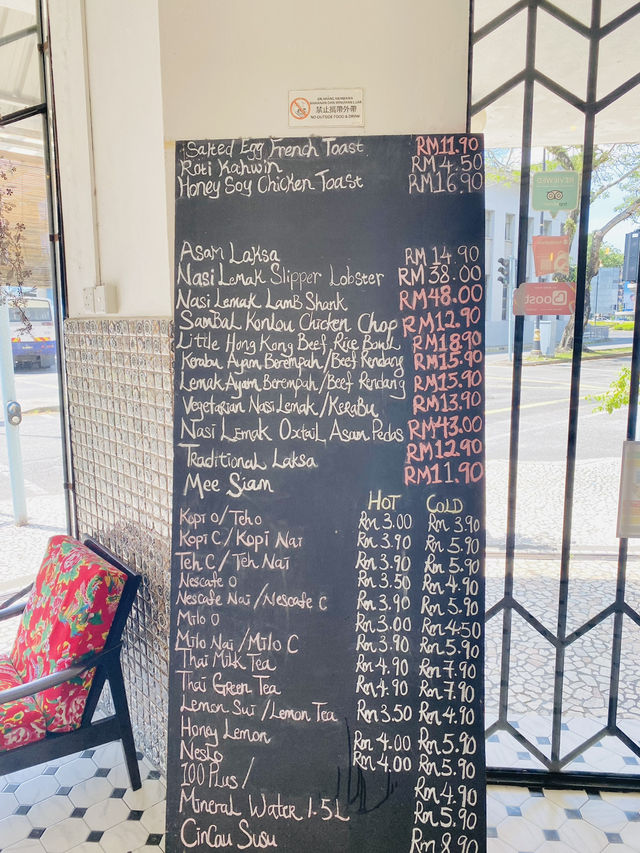 DILARANG MEMBAWA
MAKANAN DAN MINUMAN LUAR
禁止携帶外帶
NO OUTSIDE FOOD & DRINK
Salted Egg French Toast RM11.90
Roti Kahwin RM4.50
Honey Soy Chicken Toast RM16.90
Asam Laksa RM 14.90
Nasi Lemak Slipper Lobster RM 38.00
Nasi Lemak Lamb Shank RM48.00
Sambal Konlou Chicken Chop RM12.90
Little Hong Kong Beef Rice Bowl RM18.90
Kerabu Ayam Berempah/Beef Rendang RM15.90
Lemak Ayam Berempah/Beef Rendang RM15.90
Vegetarian Nasi Lemak/Kerabu RM13.90
Nasi Lemak Oxtail Asam Pedas RM43.00
Traditional Laksa RM12.90
Mee Siam RM11.90
HOT COLD
Kopi O/Teh O Rm 3.00 Rm 3.90
Kopi C/Kopi Nai Rm 3.90 Rm 5.90
Teh C/Teh Nai Rm 3.90 Rm 5.90
Nescafe O Rm 3.50 Rm 4.90
Nescafe Nai/Nescafe C Rm 3.90 Rm 5.90
Milo O Rm 3.00 Rm 4.50
Milo Nai/Milo C Rm 3.90 Rm 5.90
Thai Milk Tea Rm 4.90 Rm 7.90
Thai Green Tea Rm 4.90 Rm 7.90
Lemon Sui/Lemon Tea Rm 3.50 Rm 4.90
Honey Lemon Rm 4.00 Rm 5.90
Neslo Rm 4.00 Rm 5.90
100 Plus/ Rm 4.90
Mineral Water 1.5L Rm 5.90
Cincau Susu Rm 8.90
REVIEWED